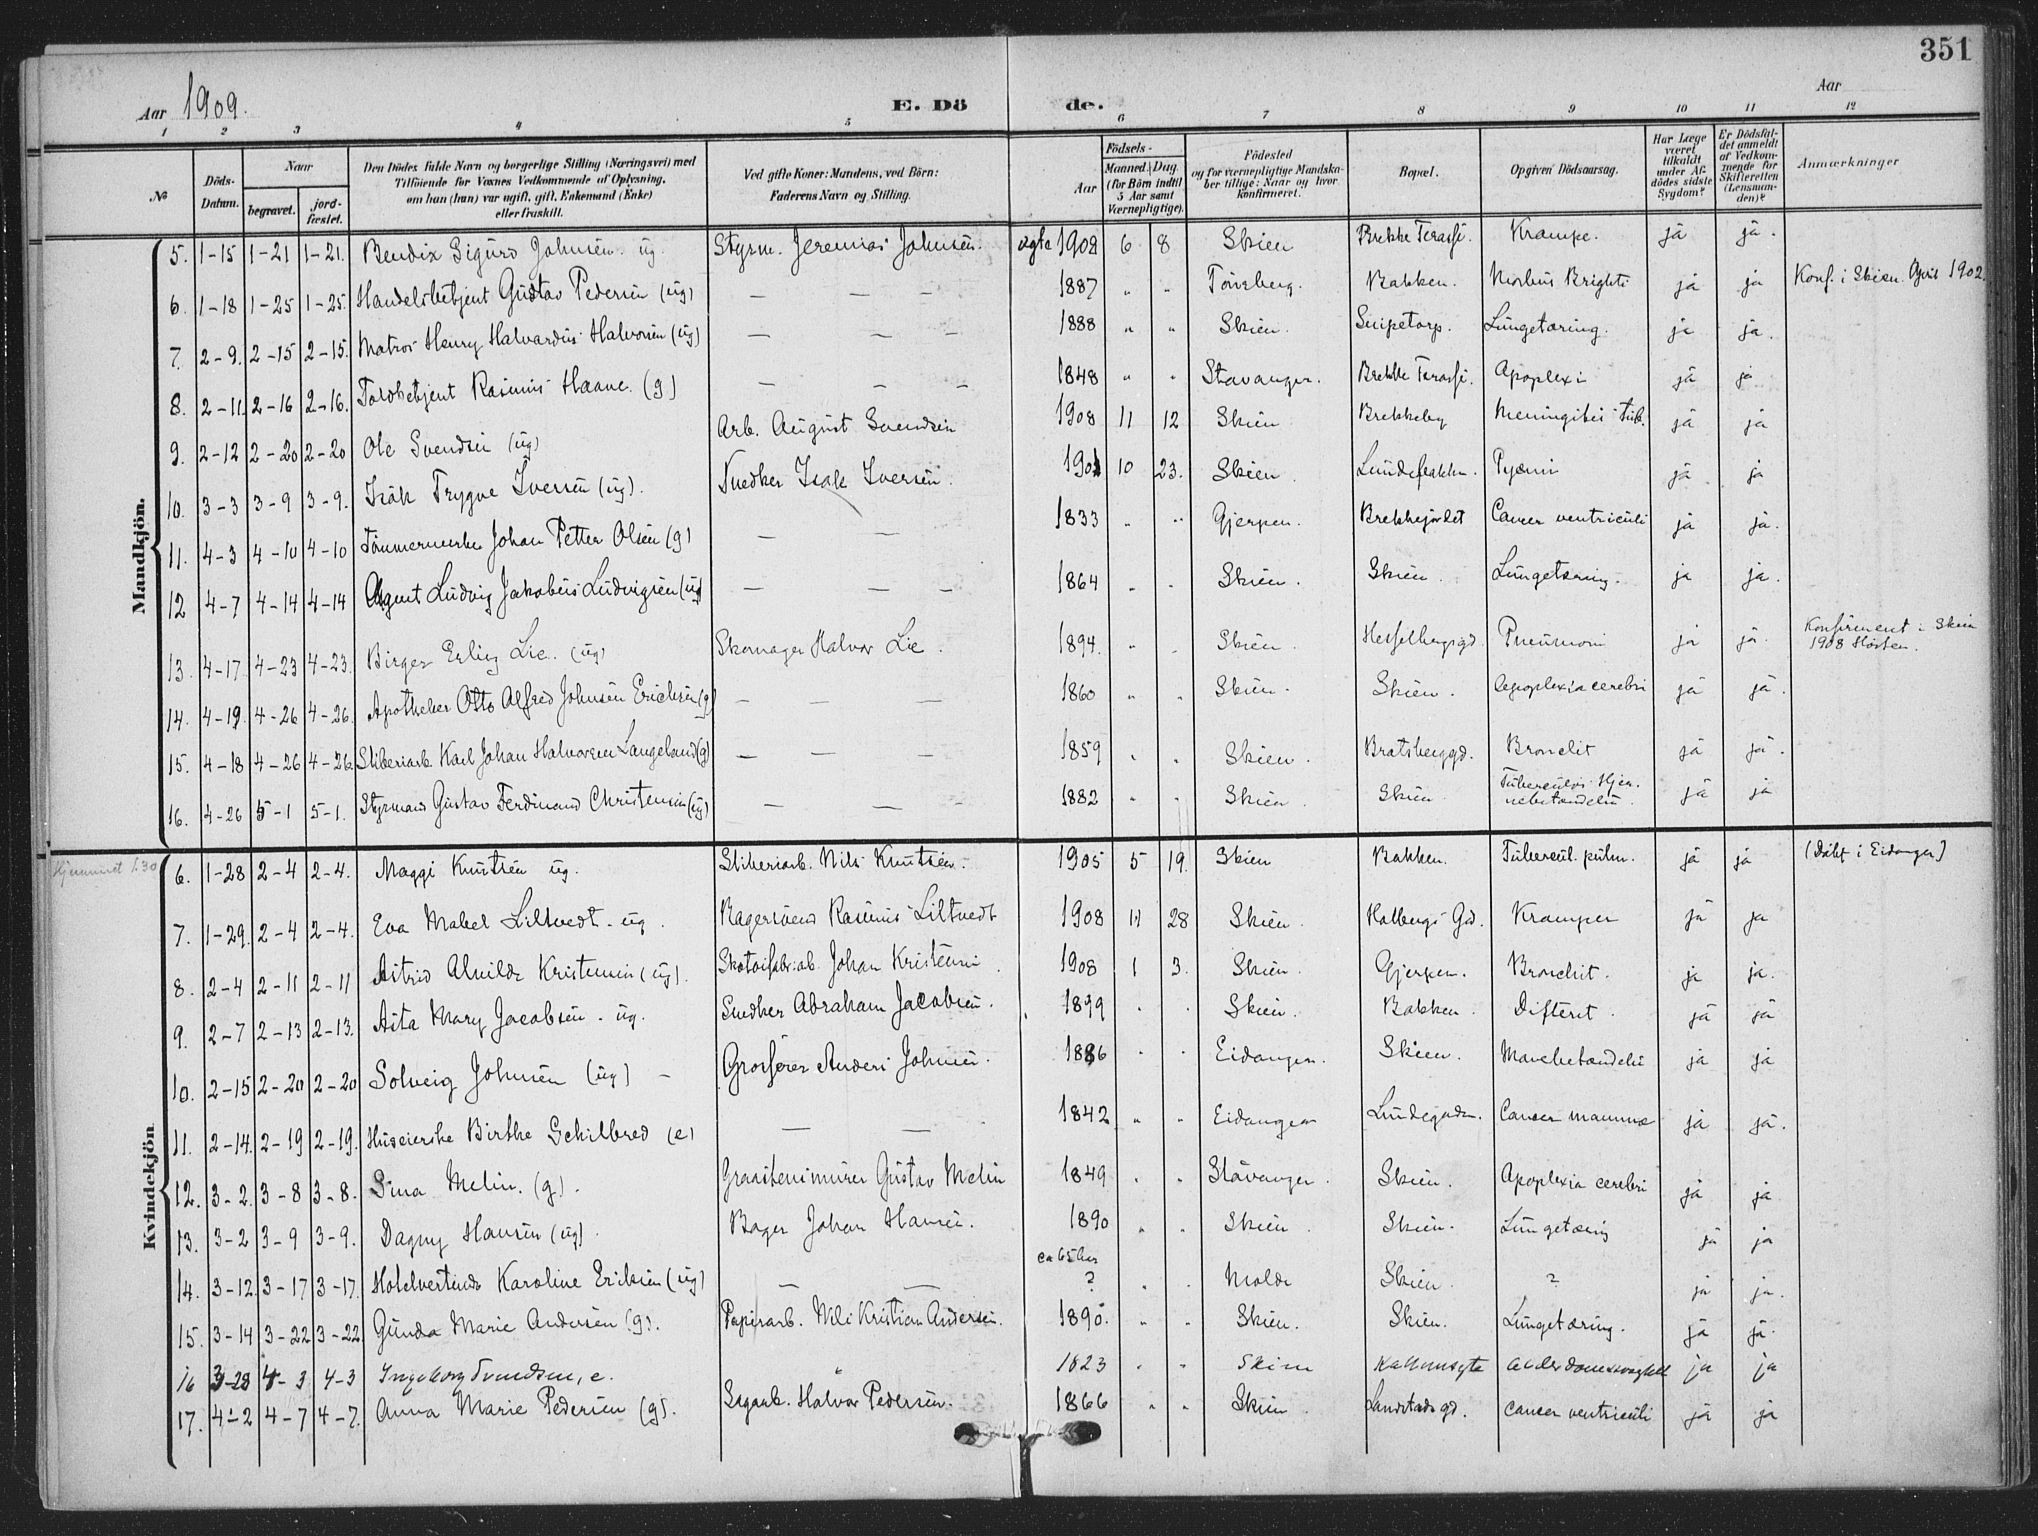 351
Aar 1909. E. Dö de. Aar
1 2 3 4 5 6 7 8 9 10 11 12
№ Döds-Datum. Naar begravet. jordfæstet. Den Dödes fulde Navn og borgerlige Stilling (Næringsvei) med Tilföiende for Voxnes Vedkommende af Oplysning, om han (hun) var ugift, gift, Enkemand (Enke) eller fraskilt. Ved gifte Koner: Mandens, ved Börn: Faderens Navn og Stilling. Födsels- Aar Maaned. Dag. (for Börn indtil 5 Aar samt Værnepligtige). Födested og for værnepligtige Mandskaber tillige: Naar og hvor konfirmeret. Bopæl. Opgiven Dödsaarsag. Har Læge været tilkaldt under Afdödes sidste Sygdom? Er Dödsfaldet anmeldt af Vedkommende for Skifteretten (Lensmanden)? Anmærkninger
Mandkjön.
5. 1-15 1-21 1-21. Bendix Sigurd Johnsen. ug. Styrm. Jeremias Johnsen. ægte 1908 6 8 Skien Brekke Terasse. Krampe. ja ja.
6. 1-18 1-25 1-25. Handelsbetjent Gustav Pedersen (ug) — — — 1887 " " Tönsberg. Bakken. Morbus Brighti ja ja Konf. i Skien April 1902.
7. 2-9. 2-15 2-15. Matros Henry Halvardus Halvorsen (ug) — — — 1888 " " Skien. Snipetorp. Lungetæring. ja ja.
8. 2-11. 2-16 2-16. Toldbetjent Rasmus Haave. (g) — — — 1848 " " Stavanger. Brekke Terasse. Apoplexi ja ja
9. 2-12 2-20 2-20 Ole Svendsen (ug) Arb. August Svendsen 1908 11 12 Skien Brekkeby Meningitis tub. ja ja
10. 3-3 3-9 3-9. Isak Trygve Iversen (ug). Snedker Isak Iversen. 1901 10 23. Skien. Lundebakken. Pyæmi ja ja
11. 4-3 4-10 4-10 Tömmermester Johan Petter Olsen (g) — — 1833 " " Gjerpen. Brekkejordet Cancer ventriculi ja ja.
12 4-7 4-14 4-14 Agent Ludvig Jakobus Ludvigsen (ug) — — — 1864 " " Skien. Skien. Lungetæring. ja ja.
13. 4-17. 4-23 4-23. Birger Erling Lie. (ug) Skomager Halvor Lie. 1894. " " Skien. Hesselbergsgd. Pneumoni ja ja. Konfirmeret i Skien 1908 Hösten.
14. 4-19. 4-26 4-26. Apotheker Otto Alfred Johnsen Erichsen (g) — — — 1860 " " Skien. Skien. Apoplexia cerebri ja ja.
15. 4-18 4-26 4-26. Sliberiarb. Karl Johan Halvorsen Langeland (g) — — — 1859 " " Skien. Bratsberggd. Bronchit ja ja.
16. 4-26 5-1 5-1. Styrmand Gustav Ferdinand Christensen (ug) — — — 1882 " " Skien. Skien. Tuberculös Hjernebetændelse. ja ja
Kvindekjön
6. 1-28 2-4 2-4. Maggi Knutsen ug. Sliberiarb. Nils Knutsen. 1905 5 19. Skien Bakken. Tubercul. pulm. ja ja (Döbt i Eidanger)
7. 1-29. 2-4 2-4. Eva Mabel Liltvedt. ug. Bagersvend Rasmus Liltvedt 1908 11 28 Skien. Holbergs Gd. Kramper ja ja
8. 2-4 2-11 2-11 Astrid Alvilde Kristensen (ug). Skotöifabr.arb. Johan Kristensen. 1908 1 3. Skien. Gjerpen. Bronchit. ja ja.
9. 2-7 2-13 2-13. Asta Mary Jacobsen. ug. Snedker Abraham Jacobsen. 1899 " " Skien. Bakken. Difterit. ja ja
10. 2-15 2-20 2-20 Solveig Johnsen (ug) — Grosserer Anders Johnsen. 1886 " " Eidanger. Skien. Mavebetændelse ja ja
11. 2-14. 2-19 2-19. Huseierske Birthe Schilbred (e) — — 1842 " " Eidanger Lundegaden. Cancer mammæ ja ja.
12. 3-2. 3-8 3-8. Sina Melin. (g). Graastensmurer Gustav Melin 1849 " " Stavanger. Skien. Apoplexia cerebri ja ja
13. 3-2 3-9 3-9. Dagny Hansen (ug). Bager Johan Hansen. 1890 " " Skien. Skien. Lungetæring ja ja
14. 3-12. 3-17 3-17. Hotelvertinde Karoline Eriksen (ug) — — ca 65 Aar ? " " Molde Skien. ? ja ja.
15. 3-14 3-22 3-22 Gunda Marie Andersen (g). Papirarb. Nils Kristian Andersen. 1890. " " Skien. Skien. Lungetæring. ja ja.
16 3-28 4-3 4-3 Ingeborg Svendsen, e. " 1823 " " Skien Alderdomssvaghed ja ja
17. 4-2 4-7 4-7. Anna Marie Pedersen (g). Sagarb. Halvor Pedersen. 1866 " " Skien. Landstads gd. Cancer ventriculi ja ja